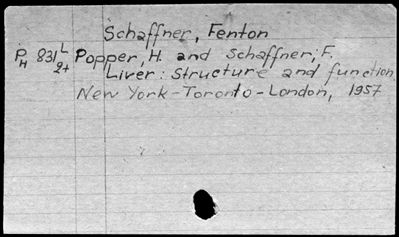 Schaffner, Fenton
PH 831L Popper, H. and Schaffner, F.
2+ Liver: Structure and function,
New York-Toronto-London, 1957